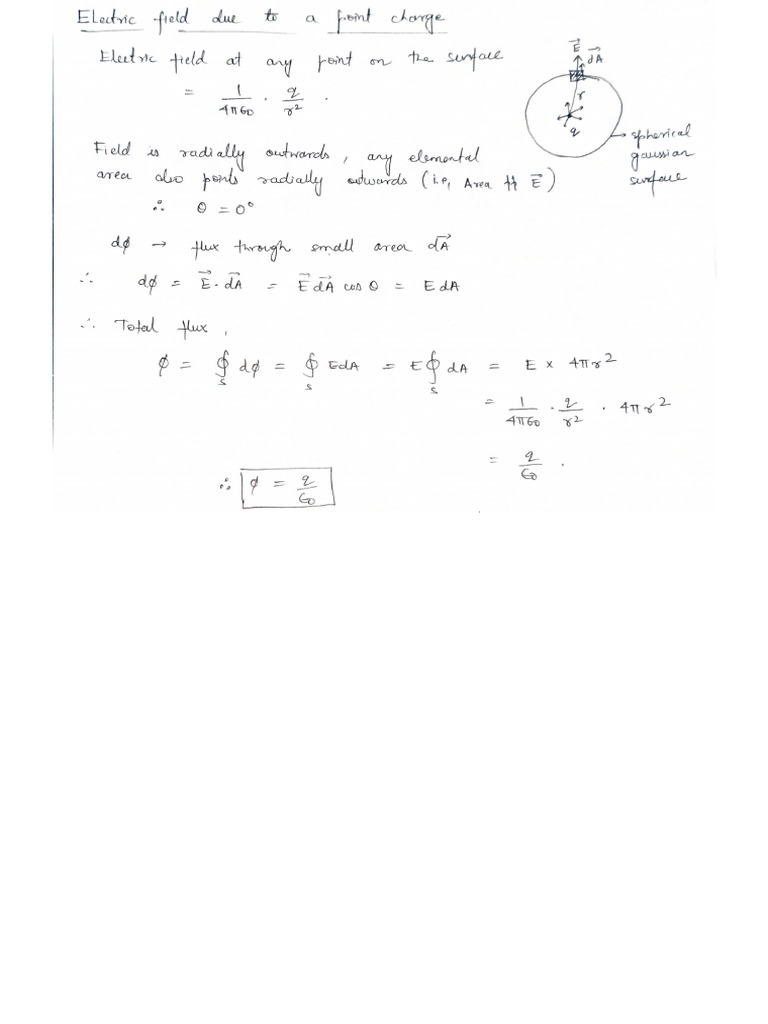 Electric field due to a point charge
Electric field at any point on the surface
= 1/4πϵ0 · q/r² .
E⃗
dA⃗
r
q
→ spherical
gaussian
surface
Field is radially outwards, any elemental
area also points radially outwards (i.e, Area ⇈ E⃗)
∴ θ = 0°
dϕ → flux through small area dA⃗
∴ dϕ = E⃗ · dA⃗ = E⃗ dA⃗ cos θ = E dA
∴ Total flux,
ϕ = ∮S dϕ = ∮S EdA = E ∮S dA = E × 4πr²
= 1/4πϵ0 · q/r² · 4πr²
= q/ϵ0 .
∴ ϕ = q/ϵ0